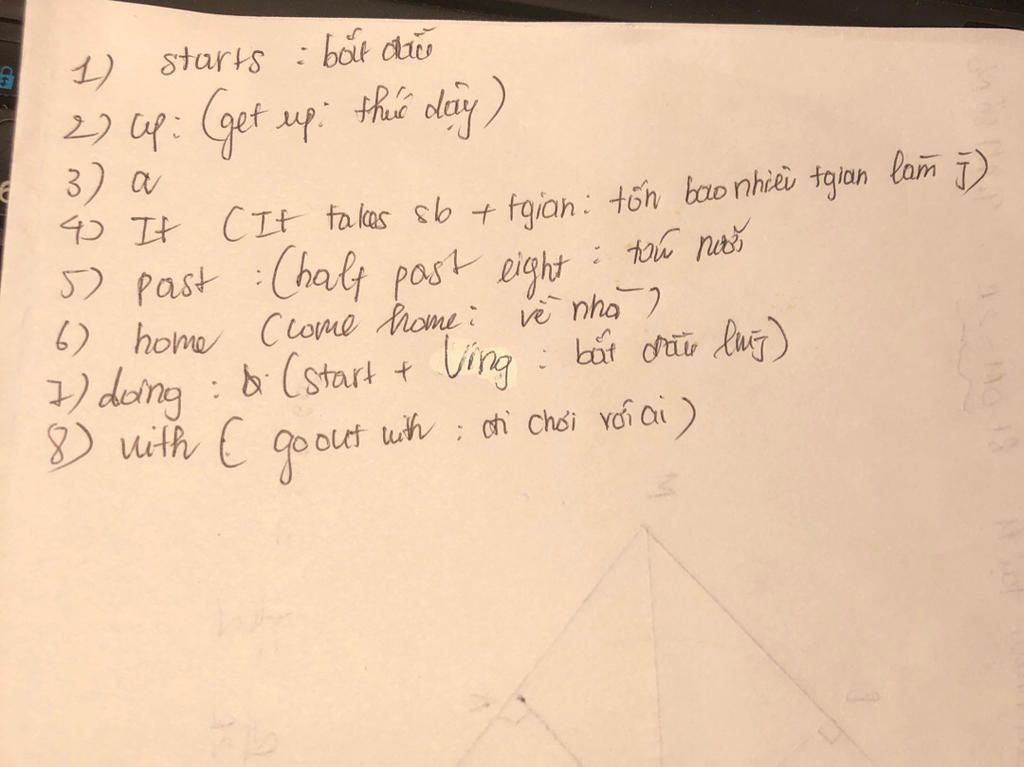 1) starts : bắt đầu
2) up: (get up: thức dậy)
3) a
4) It (It takes sb + tgian: tốn bao nhiêu tgian làm j)
5) past : (half past eight : tám rưỡi
6) home (come home: về nhà)
7) doing : (start + Ving : bắt đầu lmj)
8) with ( go out with : đi chơi với ai )
M